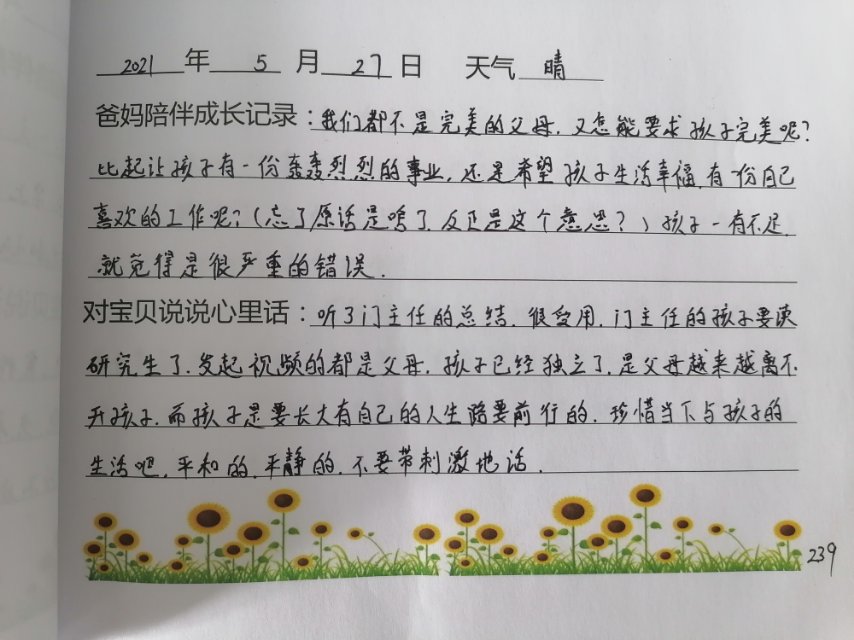 2021 年 5 月 27 日 天气 晴
爸妈陪伴成长记录：我们都不是完美的父母，又怎能要求孩子完美呢？
比起让孩子有一份轰轰烈烈的事业，还是希望孩子生活幸福，有一份自己
喜欢的工作呢？（忘了原话是啥了，反正是这个意思？）孩子一有不足，
就觉得是很严重的错误.
对宝贝说说心里话：听了门主任的总结，很受用，门主任的孩子要读
研究生了，发起视频的都是父母，孩子已经独立了，是父母越来越离不
开孩子，而孩子是要长大有自己的人生路要前行的，珍惜当下与孩子的
生活吧，平和的，平静的，不要带刺激地话.
239